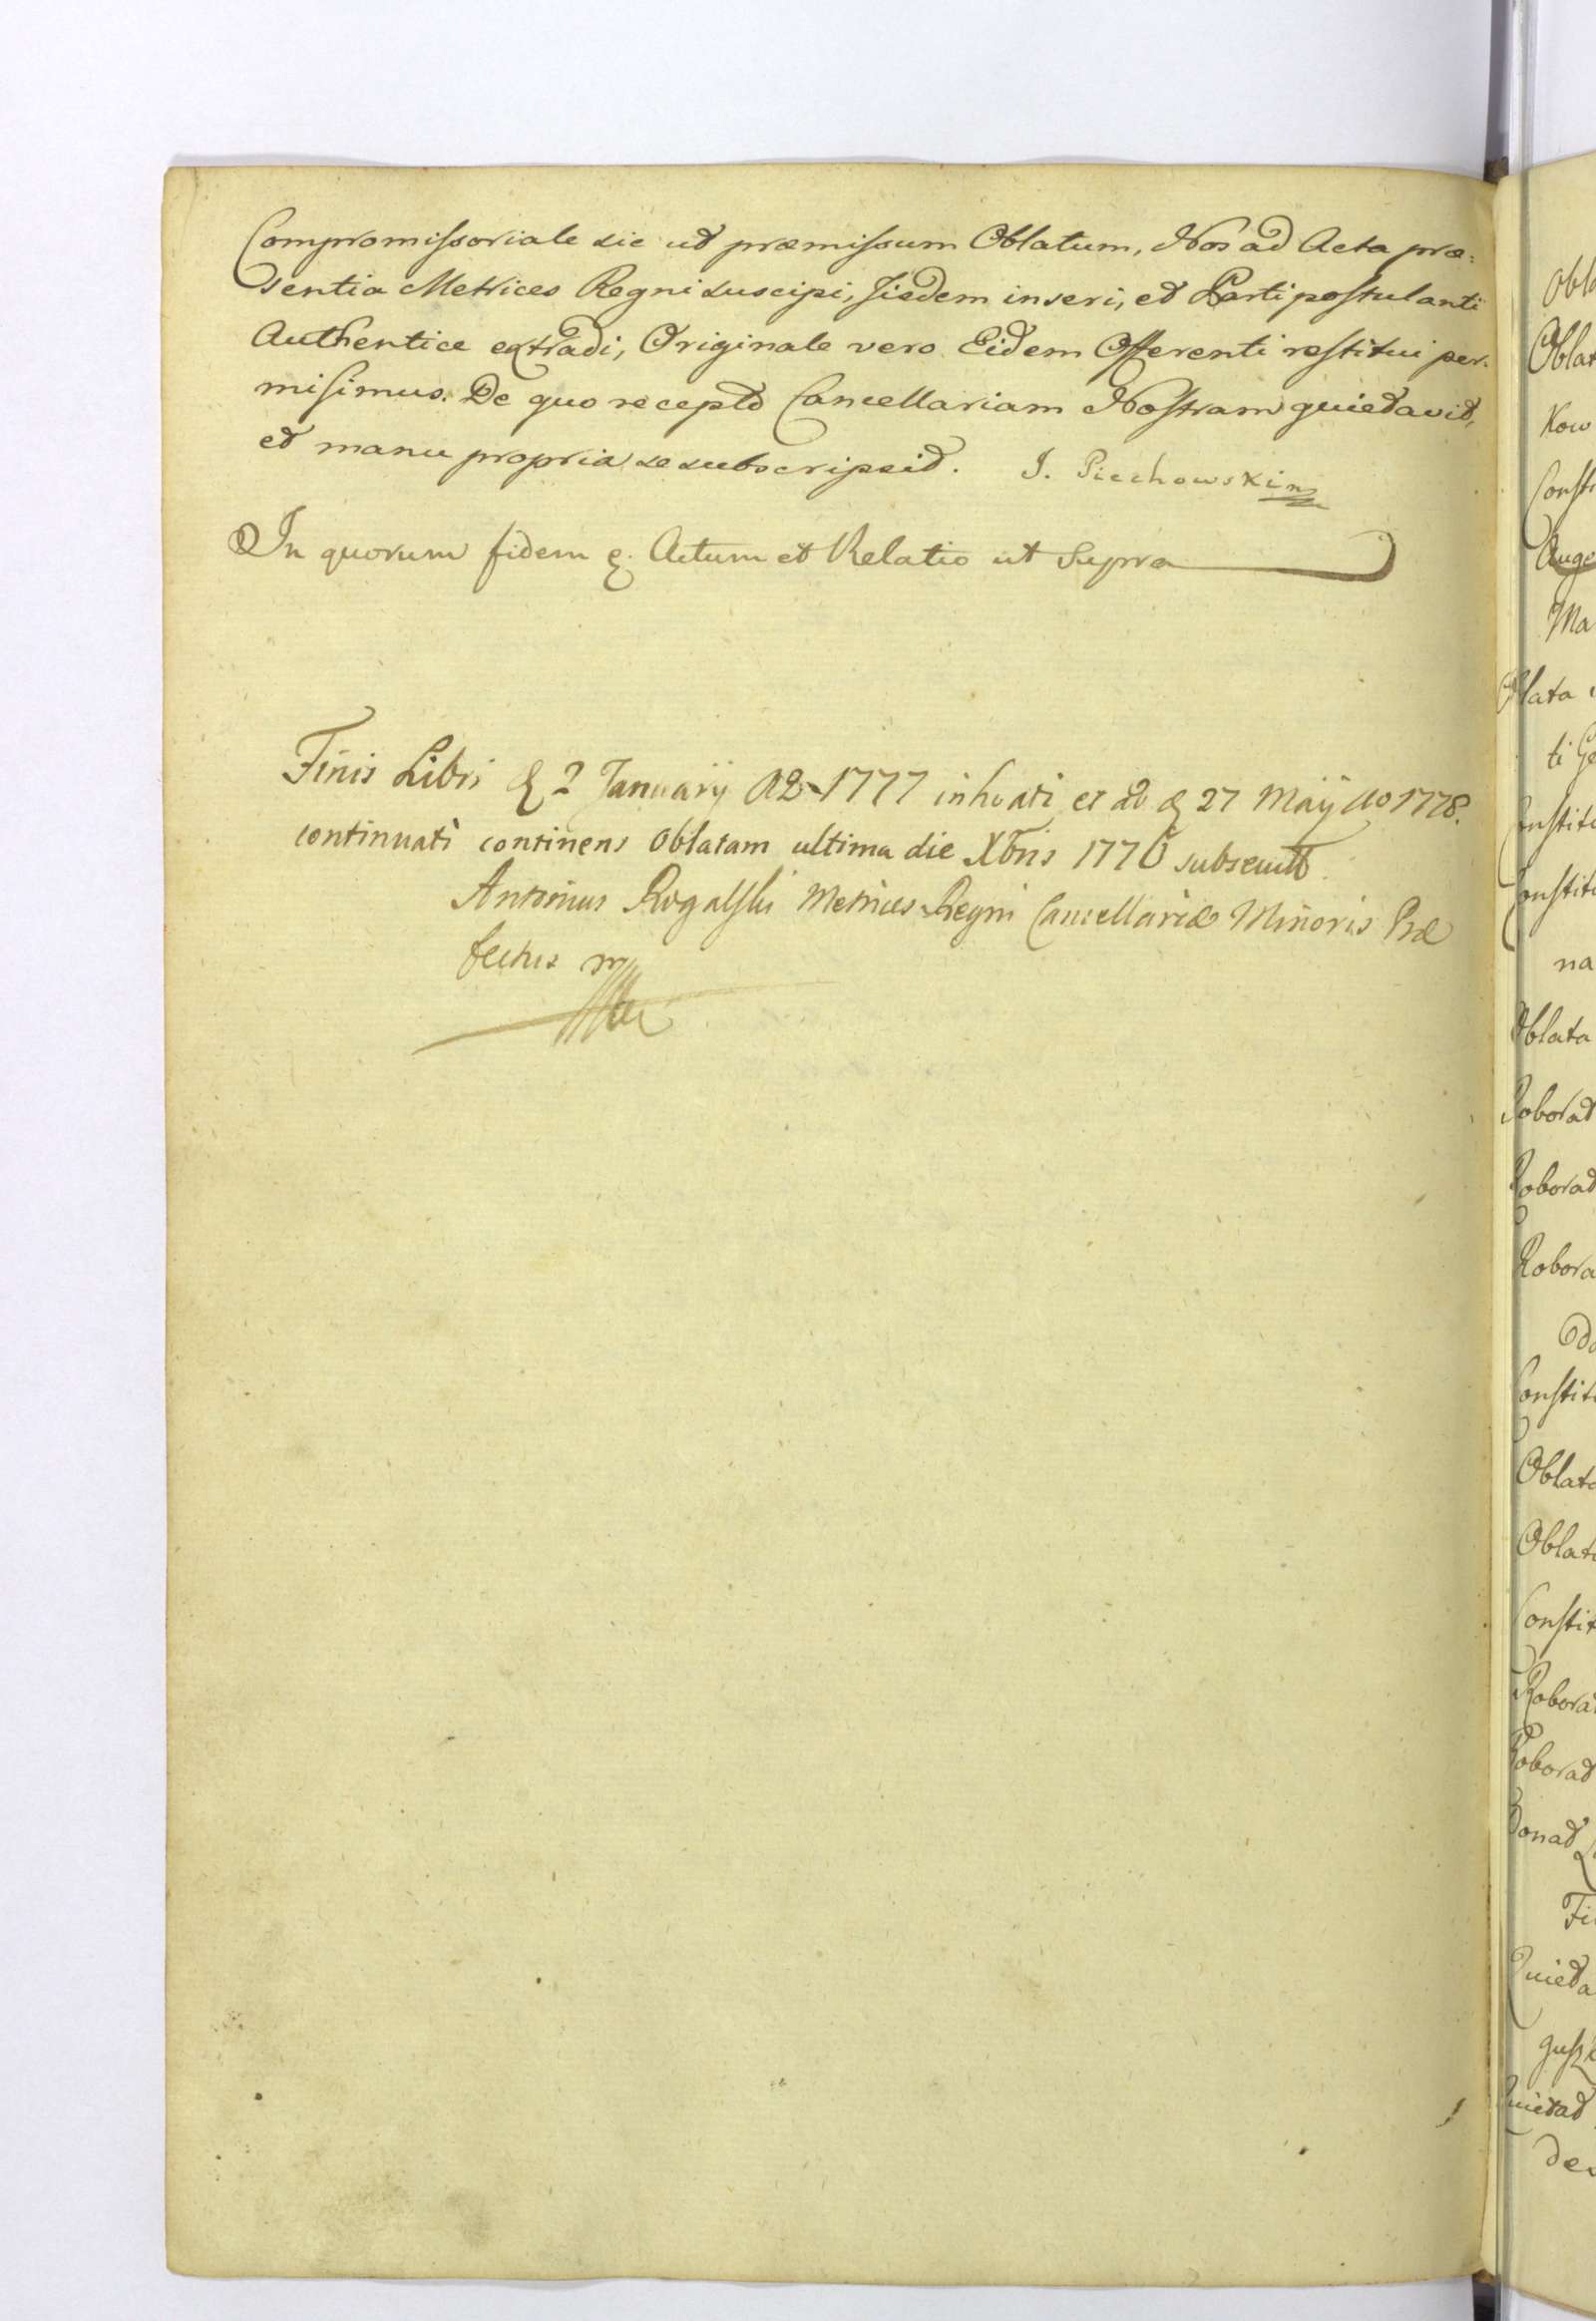 Compromissoriale sic ut præmissum Oblatum, Nos ad Acta præ:
sentia Metrices Regni suscipi, Jisdem inseri, et Parti postulanti
Authentice extradi, Originale vero Eidem Offerenti restitui per:
misimus. De quo recepto Cancellariam Nostram quietavit,
et manu propria se subscripsit. J. Piechowski mp
In quorum fidem &. Actum et Relatio ut Supra
Finis Libri 2 Januarij Ao 1777 inhoati et ad 27 Maij Ao 1778.
continuati continens Oblatam ultima die Xbris 1776
Antonius Rogalski Metrices Regni Cancellariæ Minoris Præ
fectus mp
Obla
Oblat
Kow
Consti
Auge
Ma
Oblata
ti Ge
Constitu
Constitu
na
Oblata
Roborat
Roborat
Robora
Constit
Oblata
Oblata
Constit
Robora
Roborat
Donat
Fi
Quieta
Quietat
des